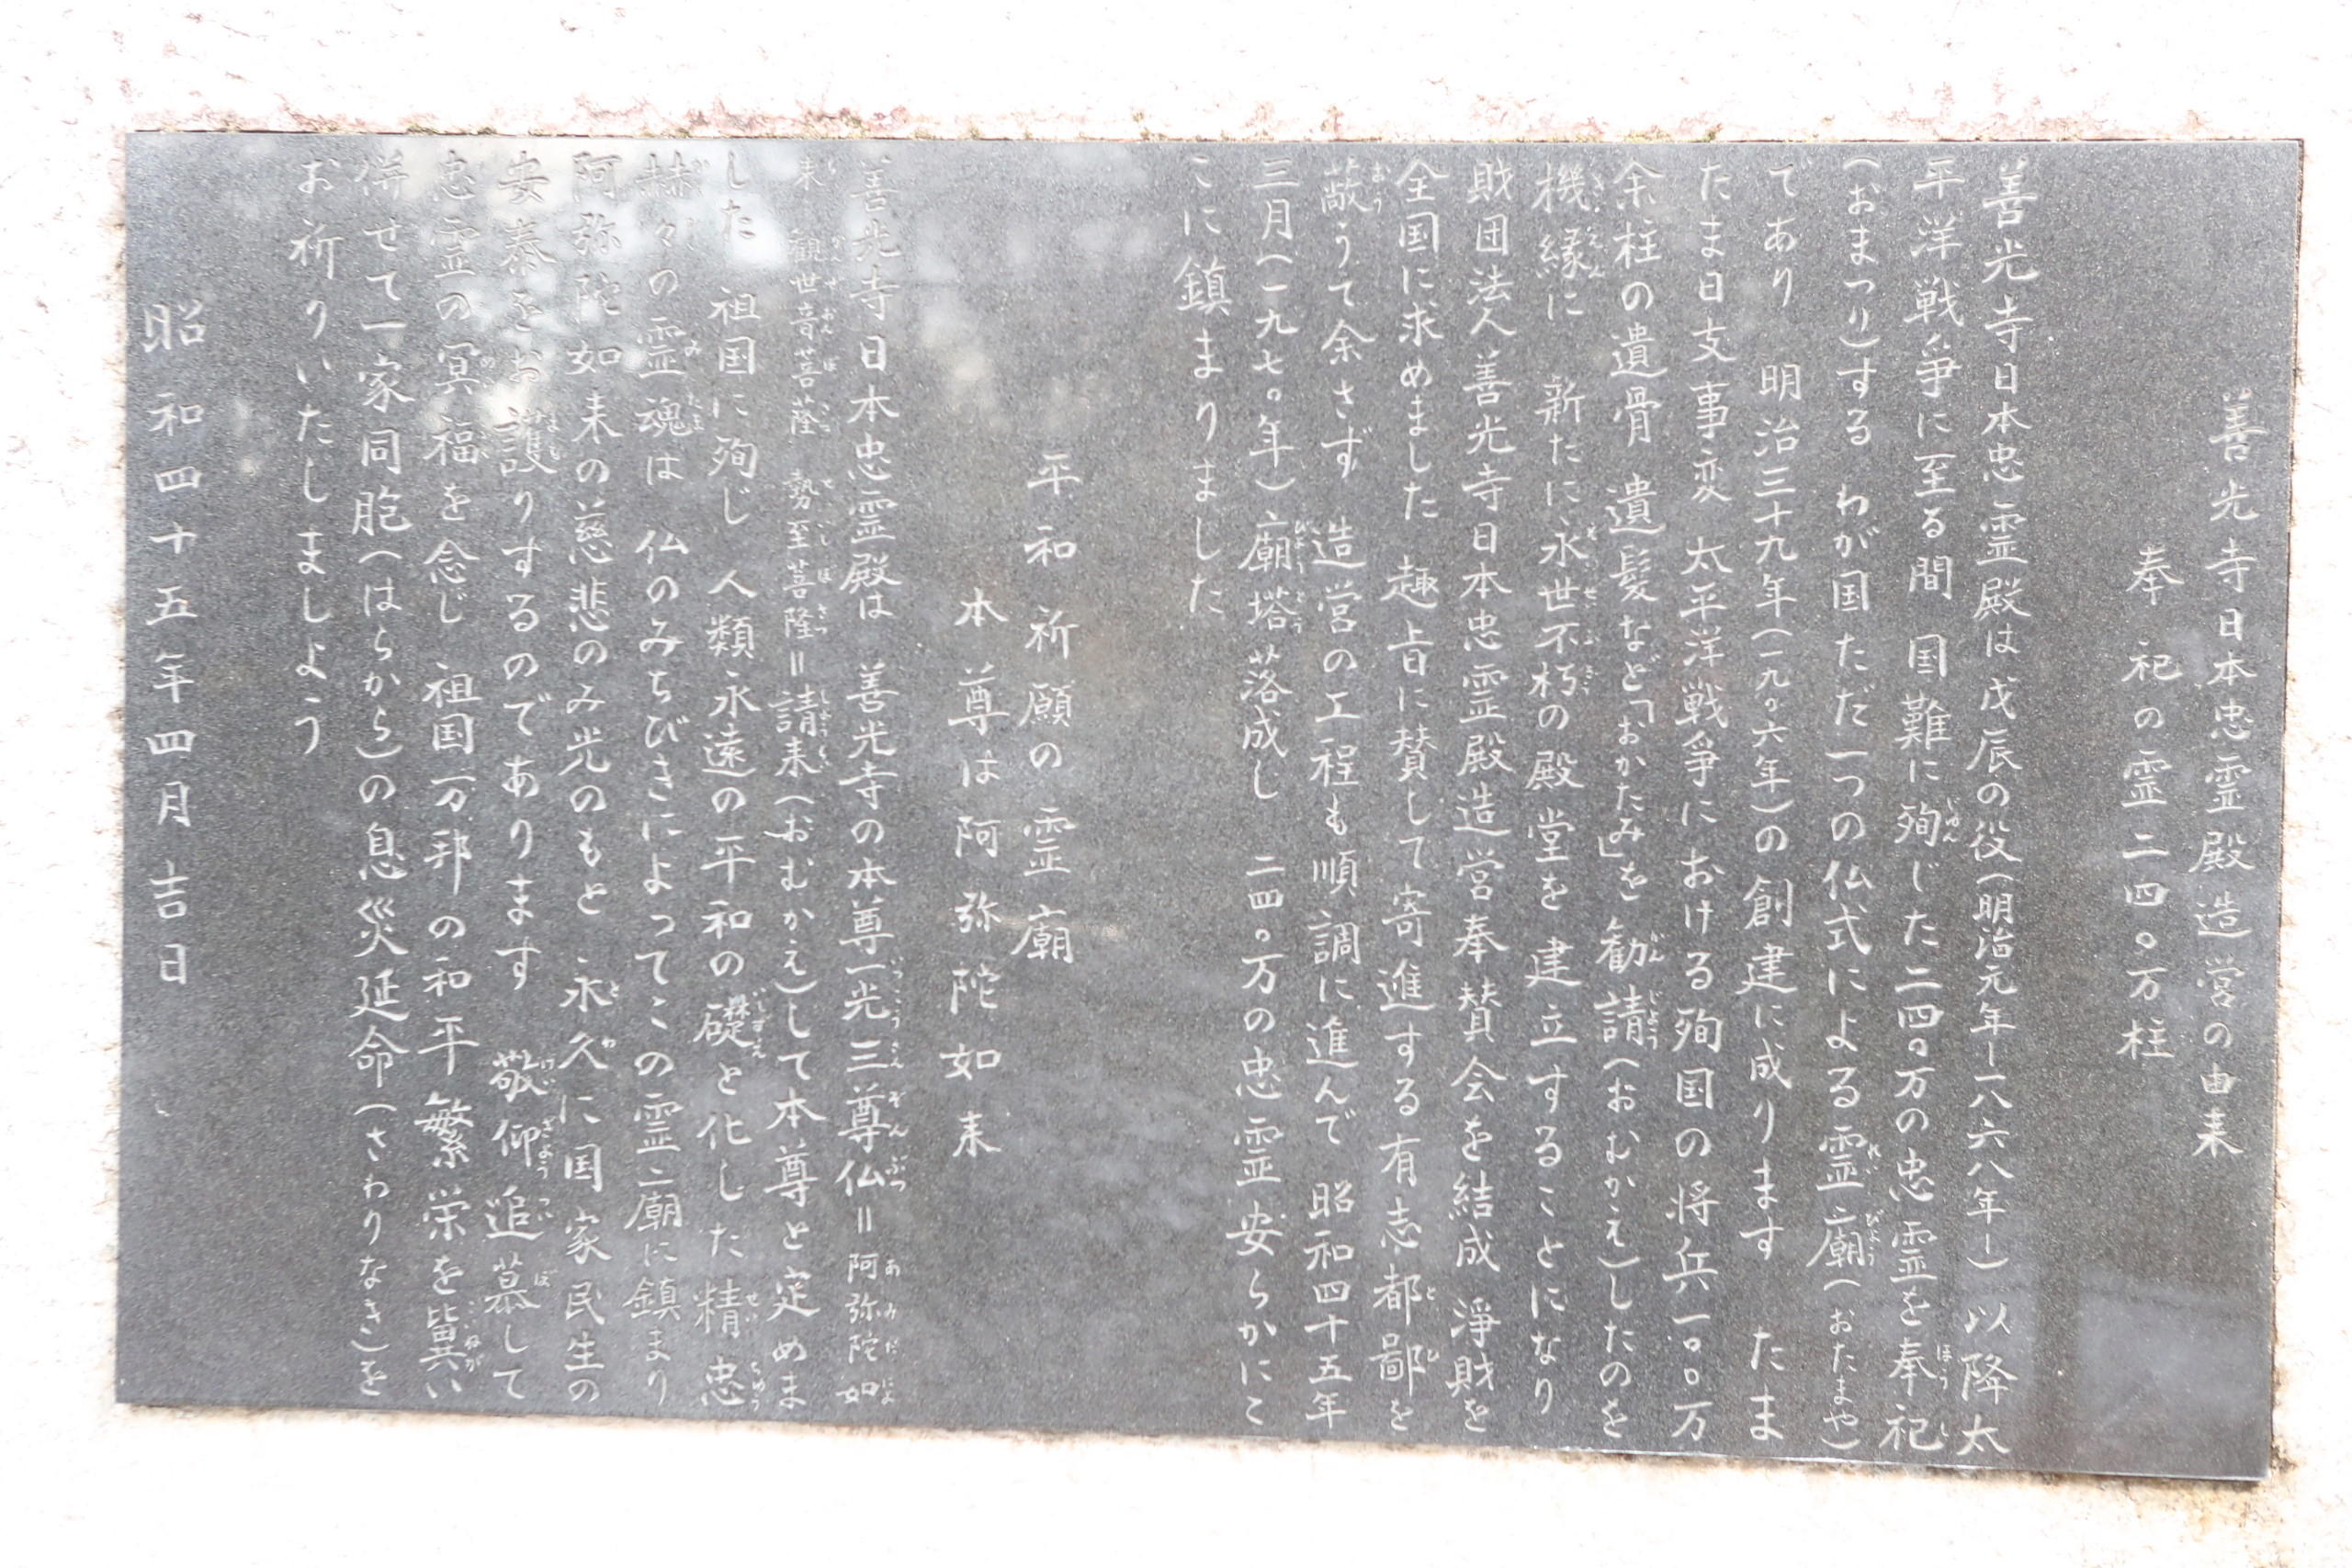 善光寺日本忠霊殿造営の由来
奉祀の霊二四〇万柱
善光寺日本忠霊殿は戊辰の役(明治元年―一八六八年―)以降太
平洋戦争に至る間 国難に殉じた二四〇万の忠霊を奉祀
(おまつり)する わが国ただ一つの仏式による霊廟(おたまや)
であり 明治三十九年(一九〇六年)の創建に成ります たま
たま日支事変 太平洋戦争における殉国の将兵一〇〇万
余柱の遺骨 遺髪など「おかたみ」を勧請(おむかえ)したのを
機縁に 新たに永世不朽の殿堂を建立することになり
財団法人善光寺日本忠霊殿造営奉賛会を結成 浄財を
全国に求めました 趣旨に賛して寄進する有志都鄙を
蔽うて余さず 造営の工程も順調に進んで 昭和四十五年
三月(一九七〇年)廟塔落成し 二四〇万の忠霊安らかにこ
こに鎮まりました
平和祈願の霊廟
本尊は阿弥陀如来
善光寺日本忠霊殿は 善光寺の本尊一光三尊仏=阿弥陀如
来 観世音菩薩 勢至菩薩=請来(おむかえ)して本尊と定めま
した 祖国に殉じ 人類永遠の平和の礎と化した精忠
赫々の霊魂は 仏のみちびきによってこの霊廟に鎮まり
阿弥陀如来の慈悲のみ光のもと 永久に国家民生の
安泰をお護りするのであります 敬仰追慕して
忠霊の冥福を念じ 祖国万邦の和平繁栄を冀い
併せて一家同胞(はらから)の息災延命(さわりなき)を
お祈りいたしましよう
昭和四十五年四月吉日